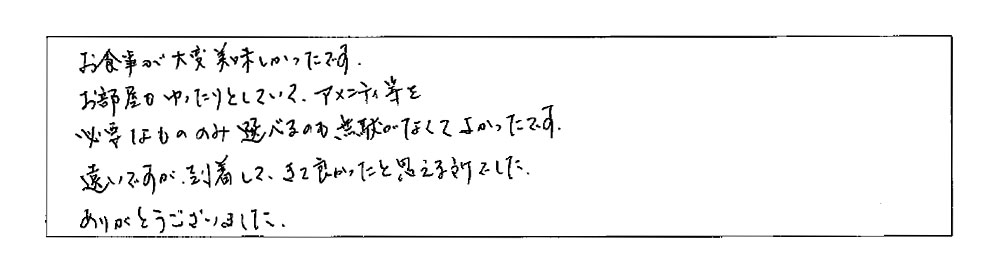 お食事が大変美味しかったです.
お部屋もゆったりとしていて、アメニティ等を
必要なもののみ選べるのも無駄がなくてよかったです.
遠いですが、到着して、きて良かったと思える所でした.
ありがとうございました.